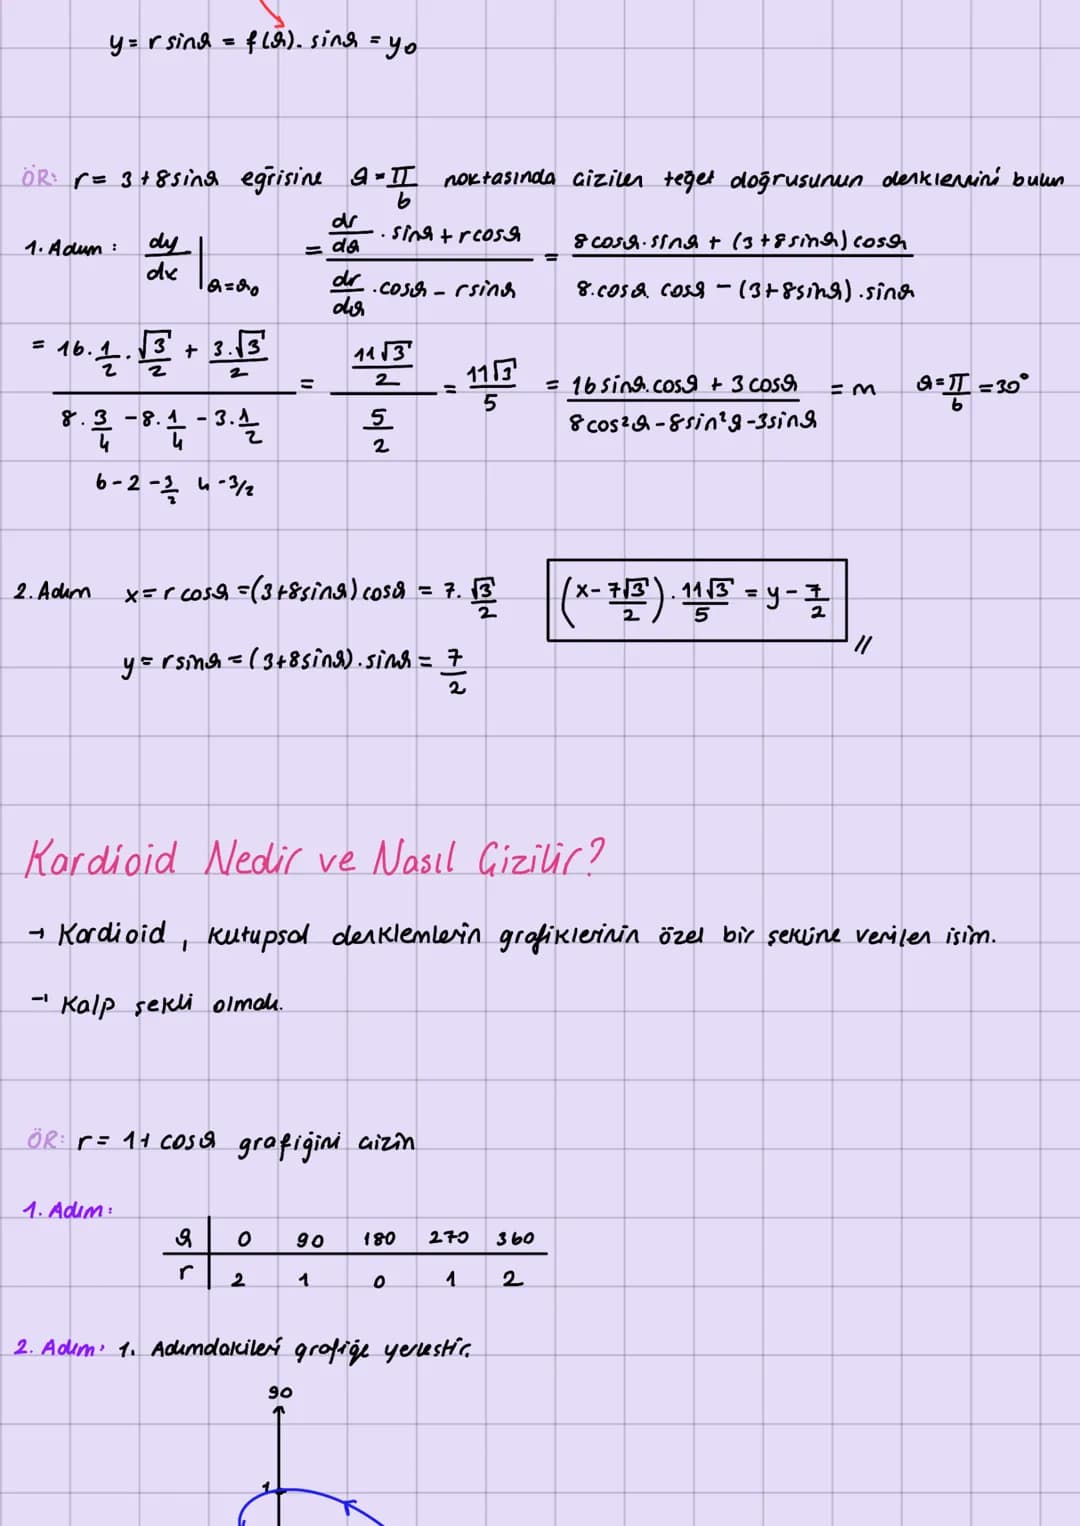 y = r sinθ = f(θ). sinθ = y₀
ÖR: r = 3+8sinθ eğrisine θ = π/6 noktasında çizilen teğet doğrusunun denklemini bulun
1. Adım : dy/dx |θ=θ₀ = (dr/dθ . sinθ + r cosθ) / (dr/dθ . cosθ - r sinθ) = (8 cosθ. sinθ + (3+8 sinθ) cosθ) / (8. cosθ cosθ - (3+8sinθ) . sinθ)
= (16. 1/2 . √3/2 + 3.√3/2) / (8. 3/4 - 8. 1/4 - 3. 1/2) = (11√3/2) / (5/2) = 11√3/5 = (16 sinθ. cosθ + 3 cosθ) / (8 cos²θ - 8 sin²θ - 3 sinθ) = m θ = π/6 = 30°
6 - 2 - 3/2 4 - 3/2
2. Adım x = r cosθ = (3+8sinθ) cosθ = 7. √3/2 (x - 7√3/2) . 11√3/5 = y - 7/2 //
y = r sinθ = (3+8sinθ). sinθ = 7/2
Kardioid Nedir ve Nasıl Çizilir?
→ Kardioid , kutupsal denklemlerin grafiklerinin özel bir şekline verilen isim.
→ Kalp şekli olmalı.
ÖR: r = 1+ cosθ grafiğini çizin
1. Adım :
θ 0 90 180 270 360
r 2 1 0 1 2
2. Adım: 1. Adımdakileri grafiğe yerleştir.
90
1